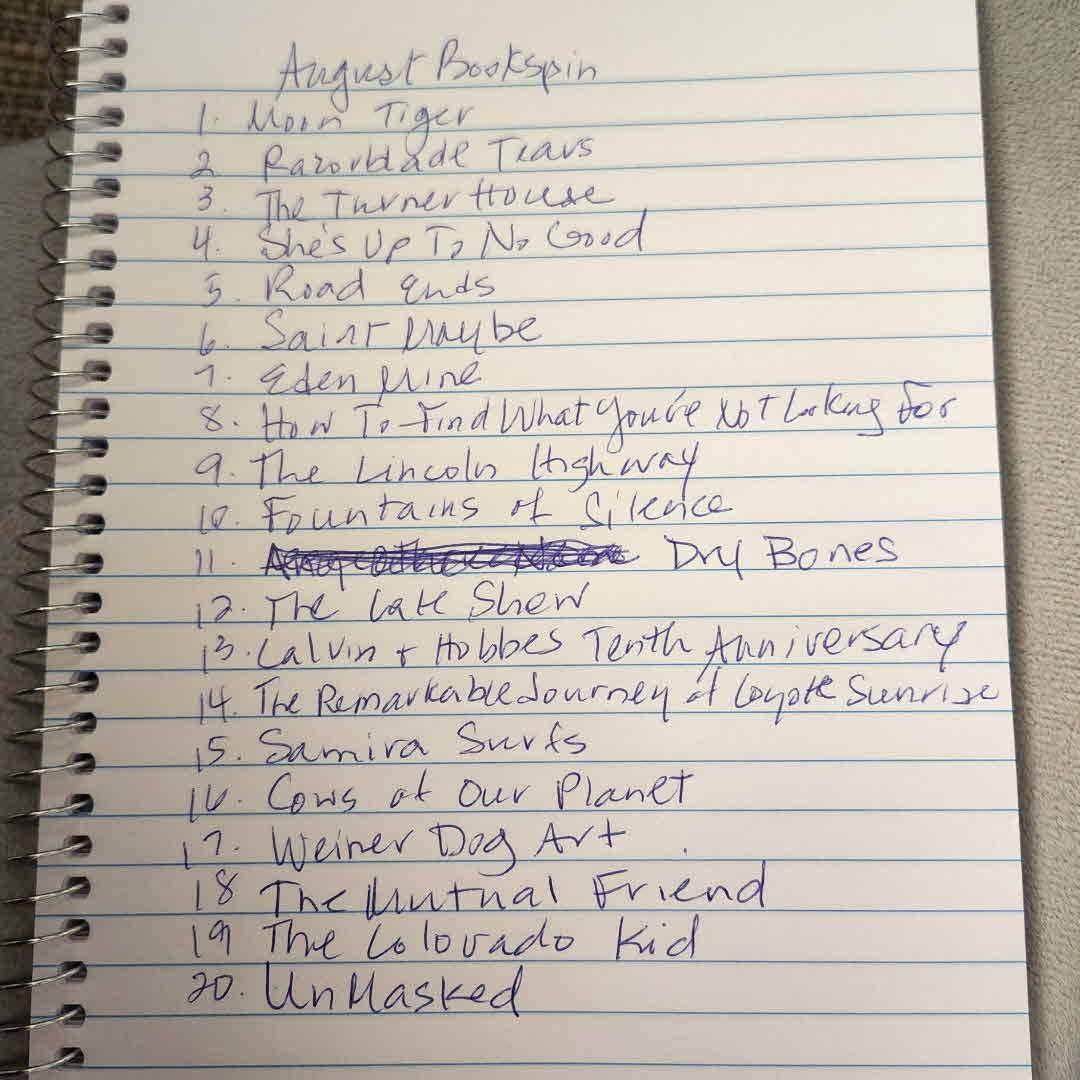 August Bookspin
1. Moon Tiger
2 Razorblade Tears
3. The Turner House
4. She's Up To No Good
5. Road Ends
6. Saint Maybe
7. Eden Mine
8. How To Find What You're Not Looking For
9. The Lincoln Highway
10. Fountains of Silence
11. Dry Bones
12. The Late Show
13. Calvin + Hobbes Tenth Anniversary
14. The Remarkable Journey of Coyote Sunrise
15. Samira Surfs
16. Cows of Our Planet
17. Weiner Dog Art
18 The Mutual Friend
19 The Colorado Kid
20. UnMasked